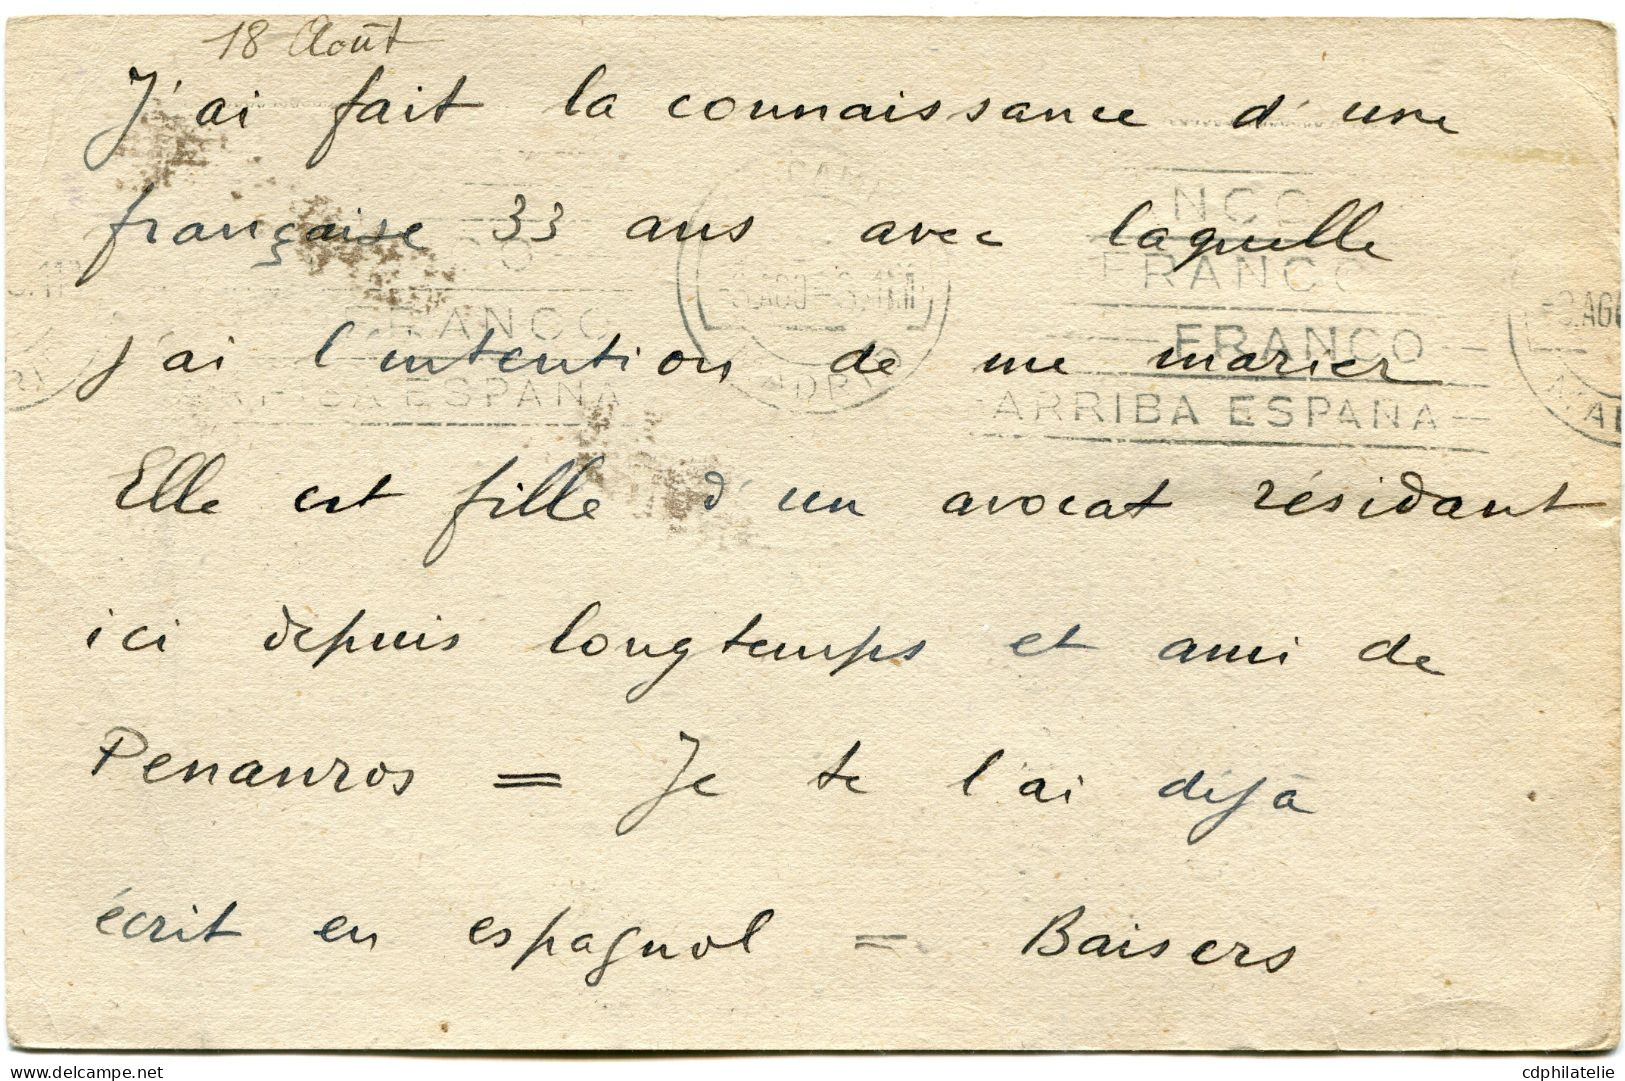 18 Août
J'ai fait la connaissance d'une
française 33 ans avec laquelle
j'ai l'intention de me marier
Elle est fille d'un avocat résidant
ici depuis longtemps et ami de
Penanros = Je te l'ai déjà
écrit en espagnol = Baisers
FRANCO
ARRIBA ESPAÑA
FRANCO
FRANCO
ARRIBA ESPAÑA
cdphilatelie